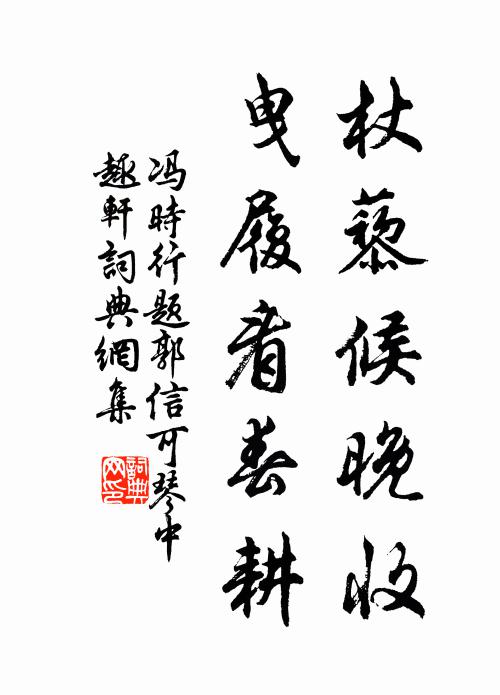 杖藜候晚收
曳履看春耕
冯時行題郭信可琴中
趣軒詞典網集
詞典网印